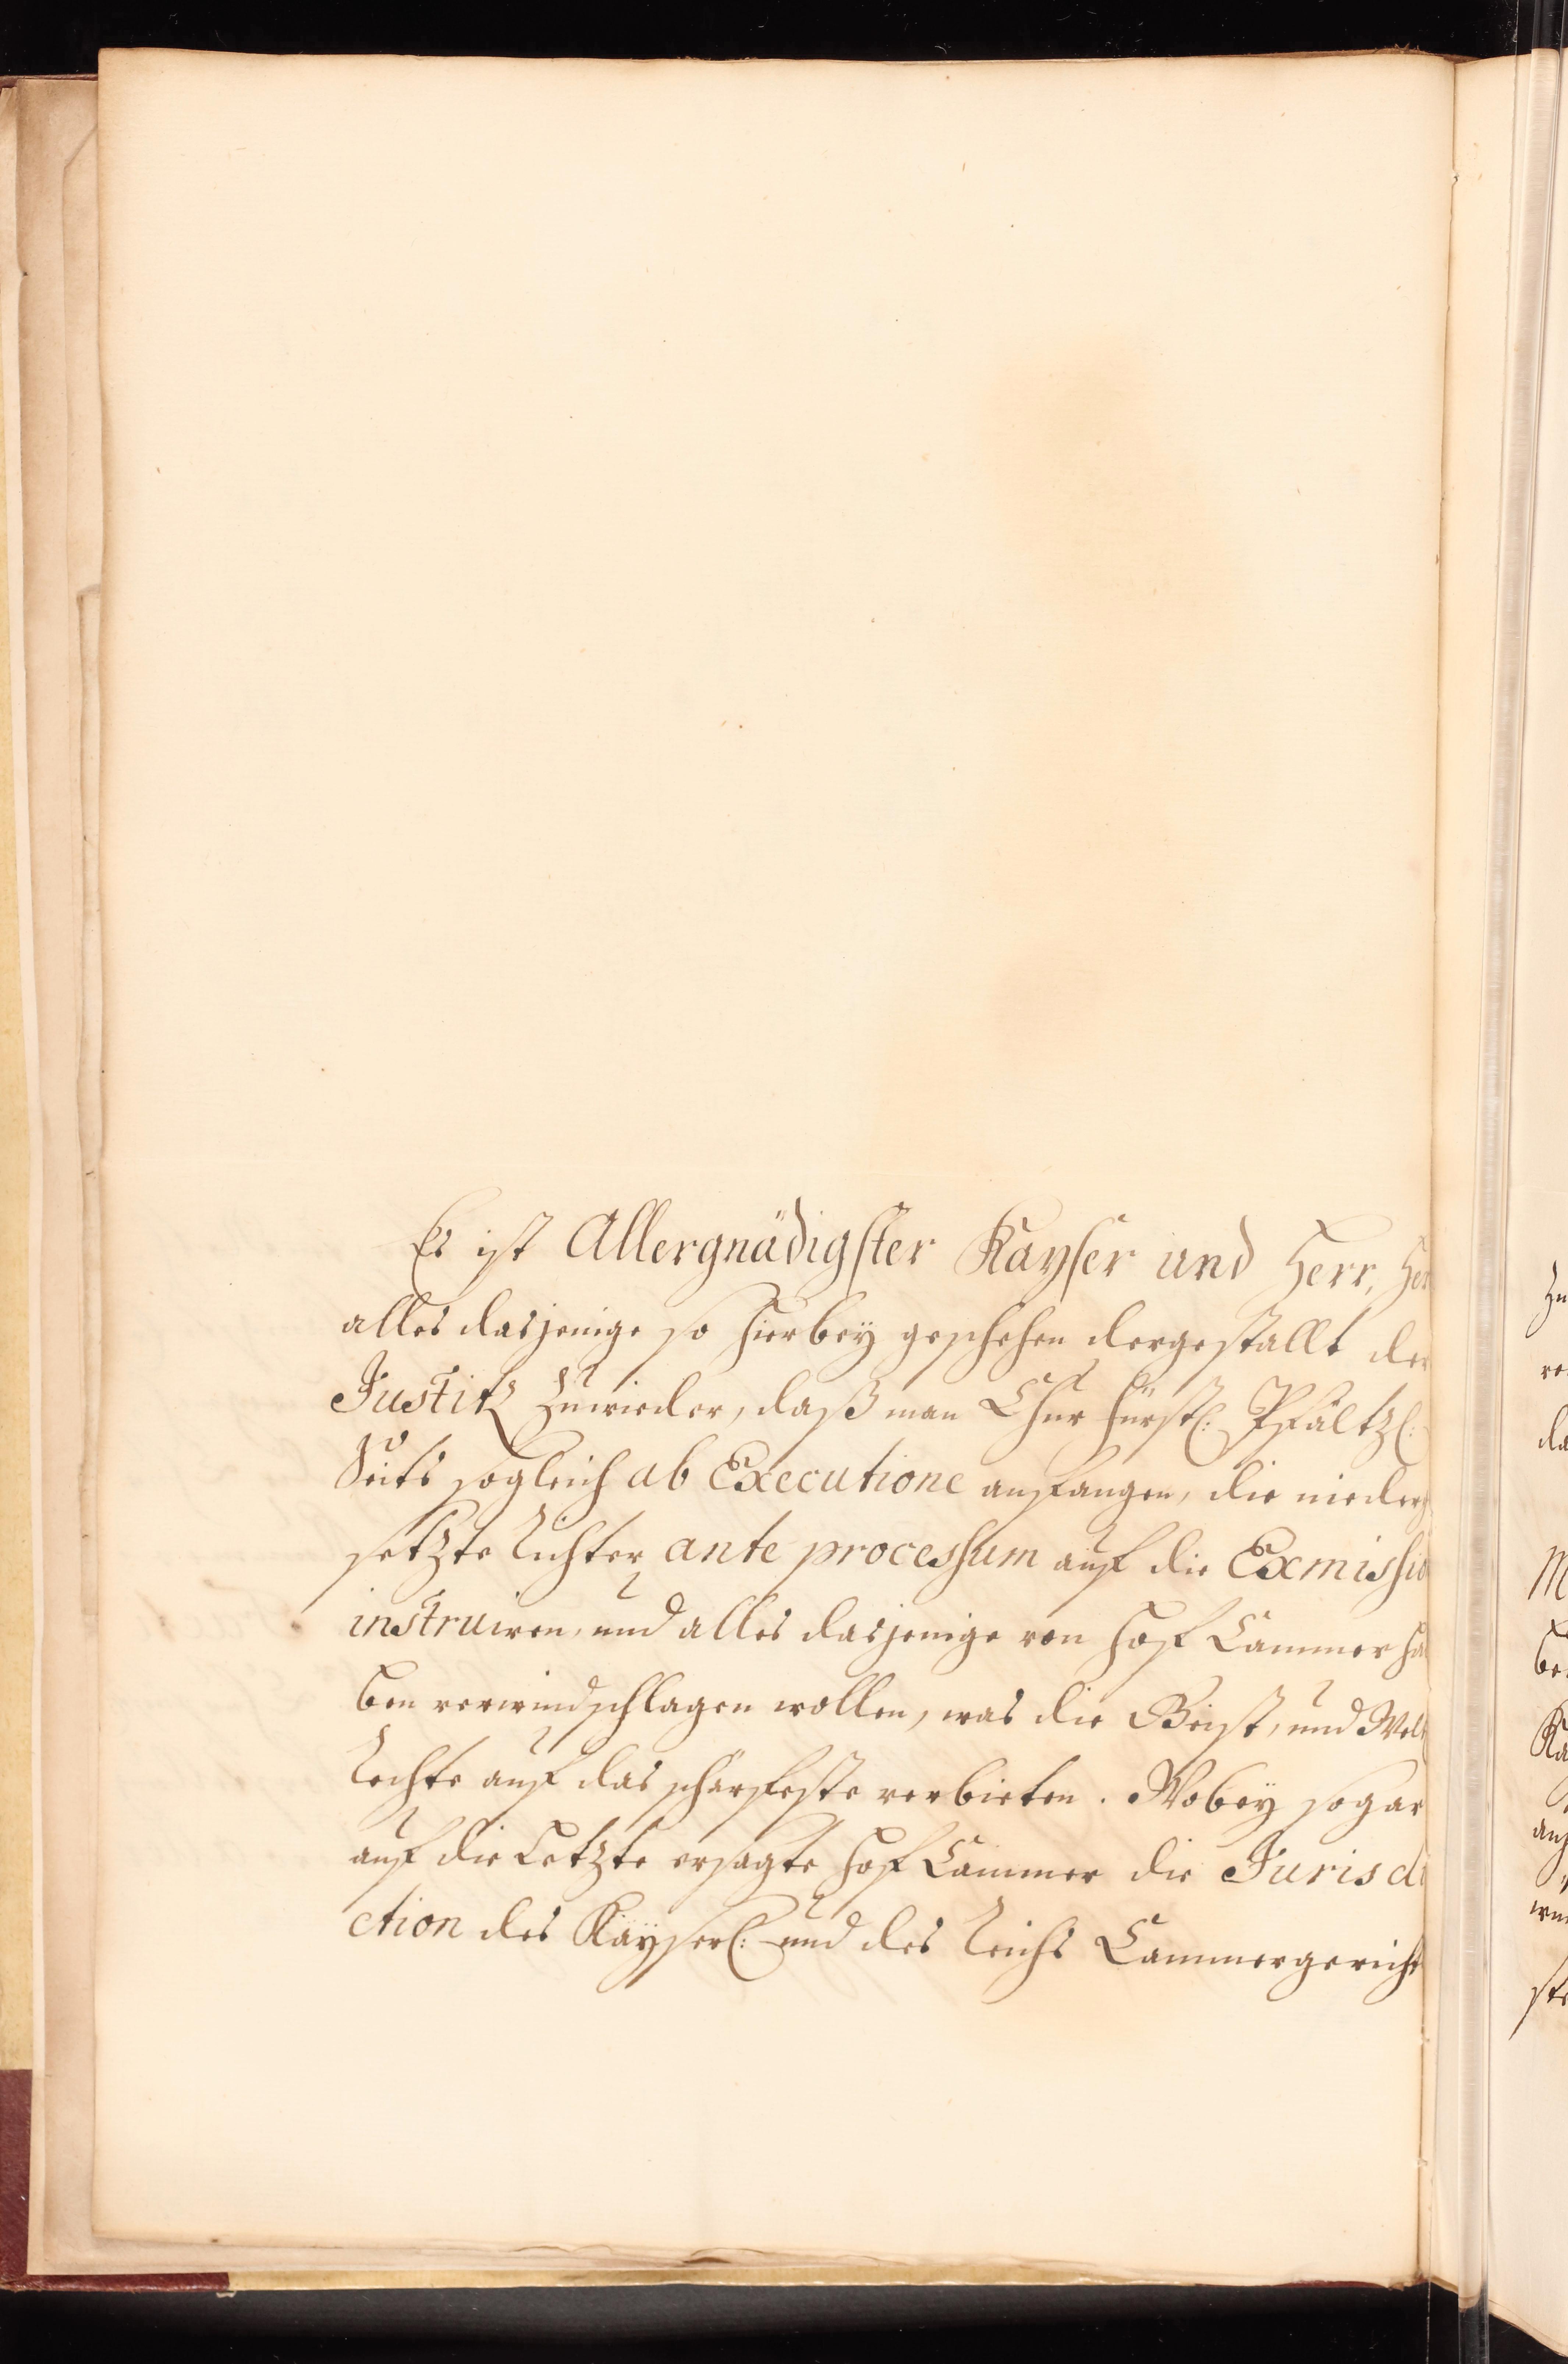 Es ist Allergnädigster Kayser und Herr, Herr
alles dasjenige so hierbey geschehen dergestallt der
Justitz zuwieder, daß man Chur Fürstl: Pfältzl:
Seits sogleich ab Executione anfangen, die nieder
setzte Richter ante processum auf die Exmissio
instruiren, und alles dasjenige von Hof Cammer ha
ben verwindschlagen wollen, was die Geist, und Welt
Rechte auf das schärfeste verbieten. Wobey sogar
auf die Letzte ersagte Hof Cammer die Jurisdi
ction des Kayserl: und des Reichs Cammergericht